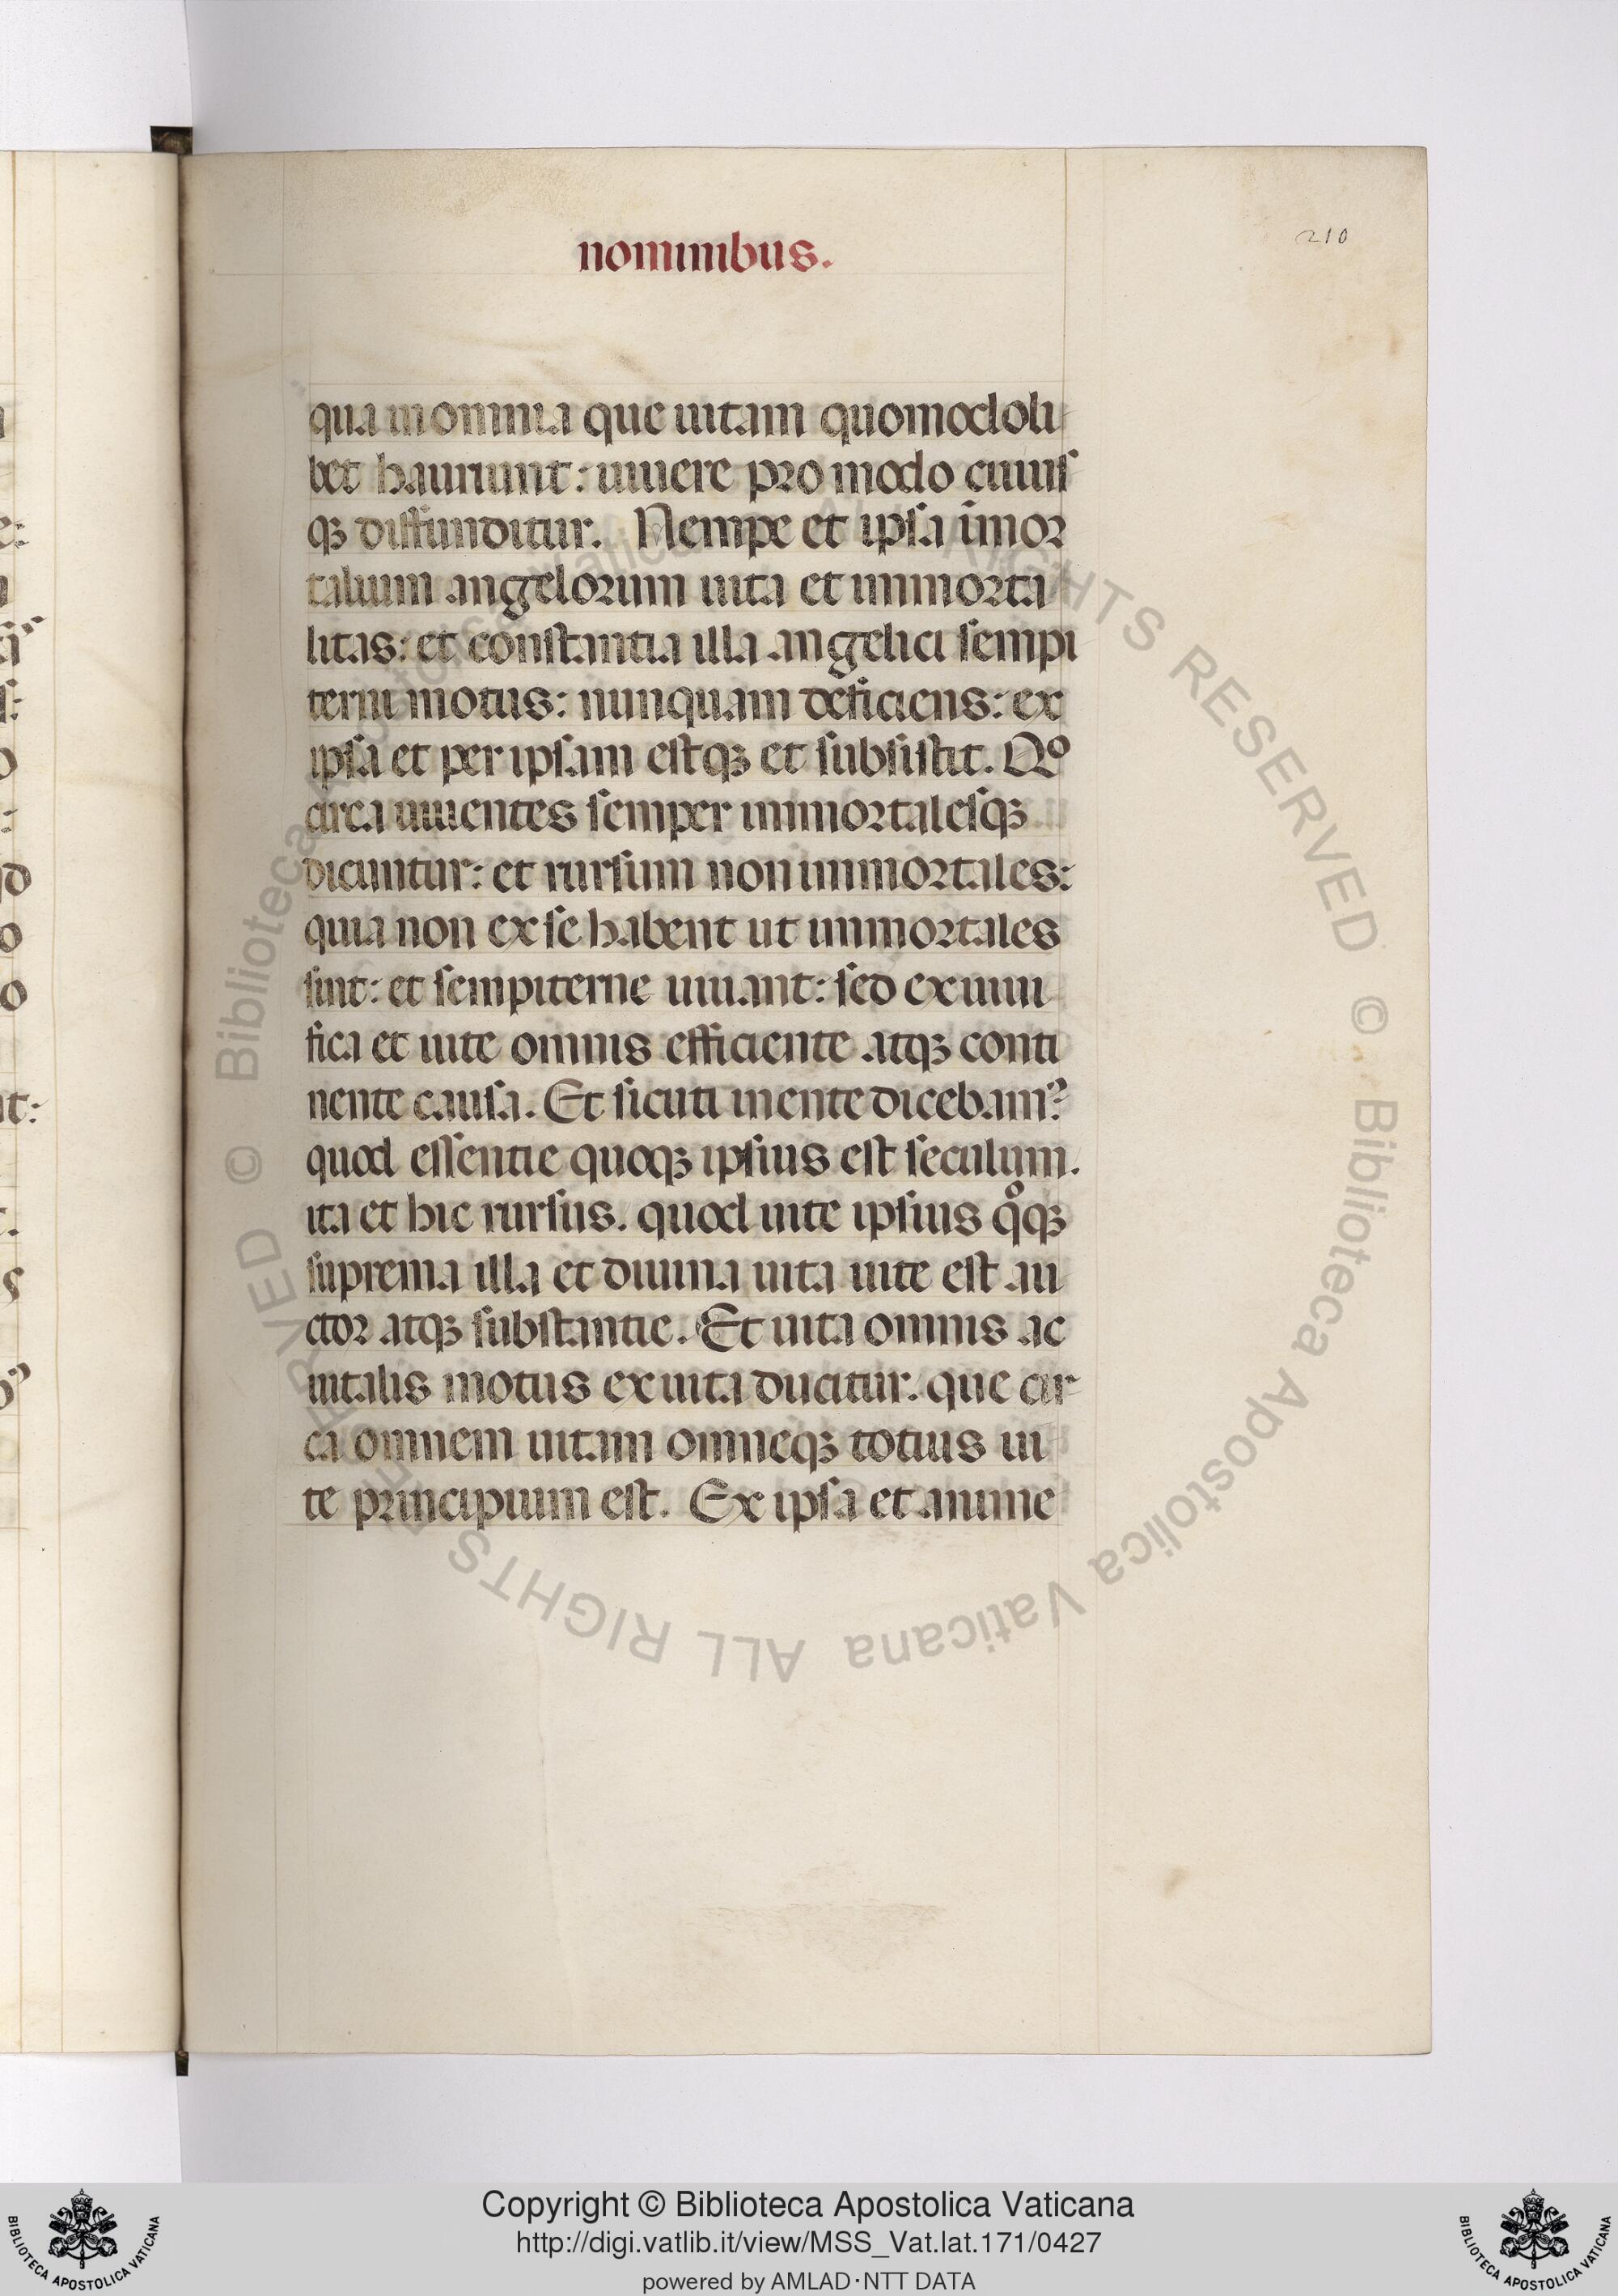 nominibus.
210
qua in omnia que uitam quomodoli
bet hauriunt: uiuere pro modo cuius
qꝫ diffunditur. Nempe et ipsa im̄or
talium angelorum uita et immorta
litas: et constantia illa angelici sempi
terni motus: nunquam deficiens: ex
ipsa et per ipsam estqꝫ et subsistit. Qº
circa uiuentes semper immortalesqꝫ
dicuntur: et rursum non immortales:
quia non ex se habent ut immortales
sint: et sempiterne uiuant: sed ex uiui
fica et uite omnis efficiente atqꝫ conti
nente causa. Et sicuti in ente dicebamꝰ
quod essentie quoqꝫ ipsius est seculum.
ita et hic rursus. quod uite ipsius qͦqꝫ
suprema illa et diuina uita uite est au
ctor atqꝫ substantie. Et uita omnis ac
uitalis motus ex uita ducitur. que cir
ca omnem uitam omneqꝫ totius ui
te principium est. Ex ipsa et anime
© Biblioteca Apostolica Vaticana ALL RIGHTS RESERVED © Biblioteca Apostolica Vaticana ALL RIGHTS RESERVED
Copyright © Biblioteca Apostolica Vaticana
http://digi.vatlib.it/view/MSS_Vat.lat.171/0427
powered by AMLAD·NTT DATA
BIBLIOTECA APOSTOLICA VATICANA
BIBLIOTECA APOSTOLICA VATICANA